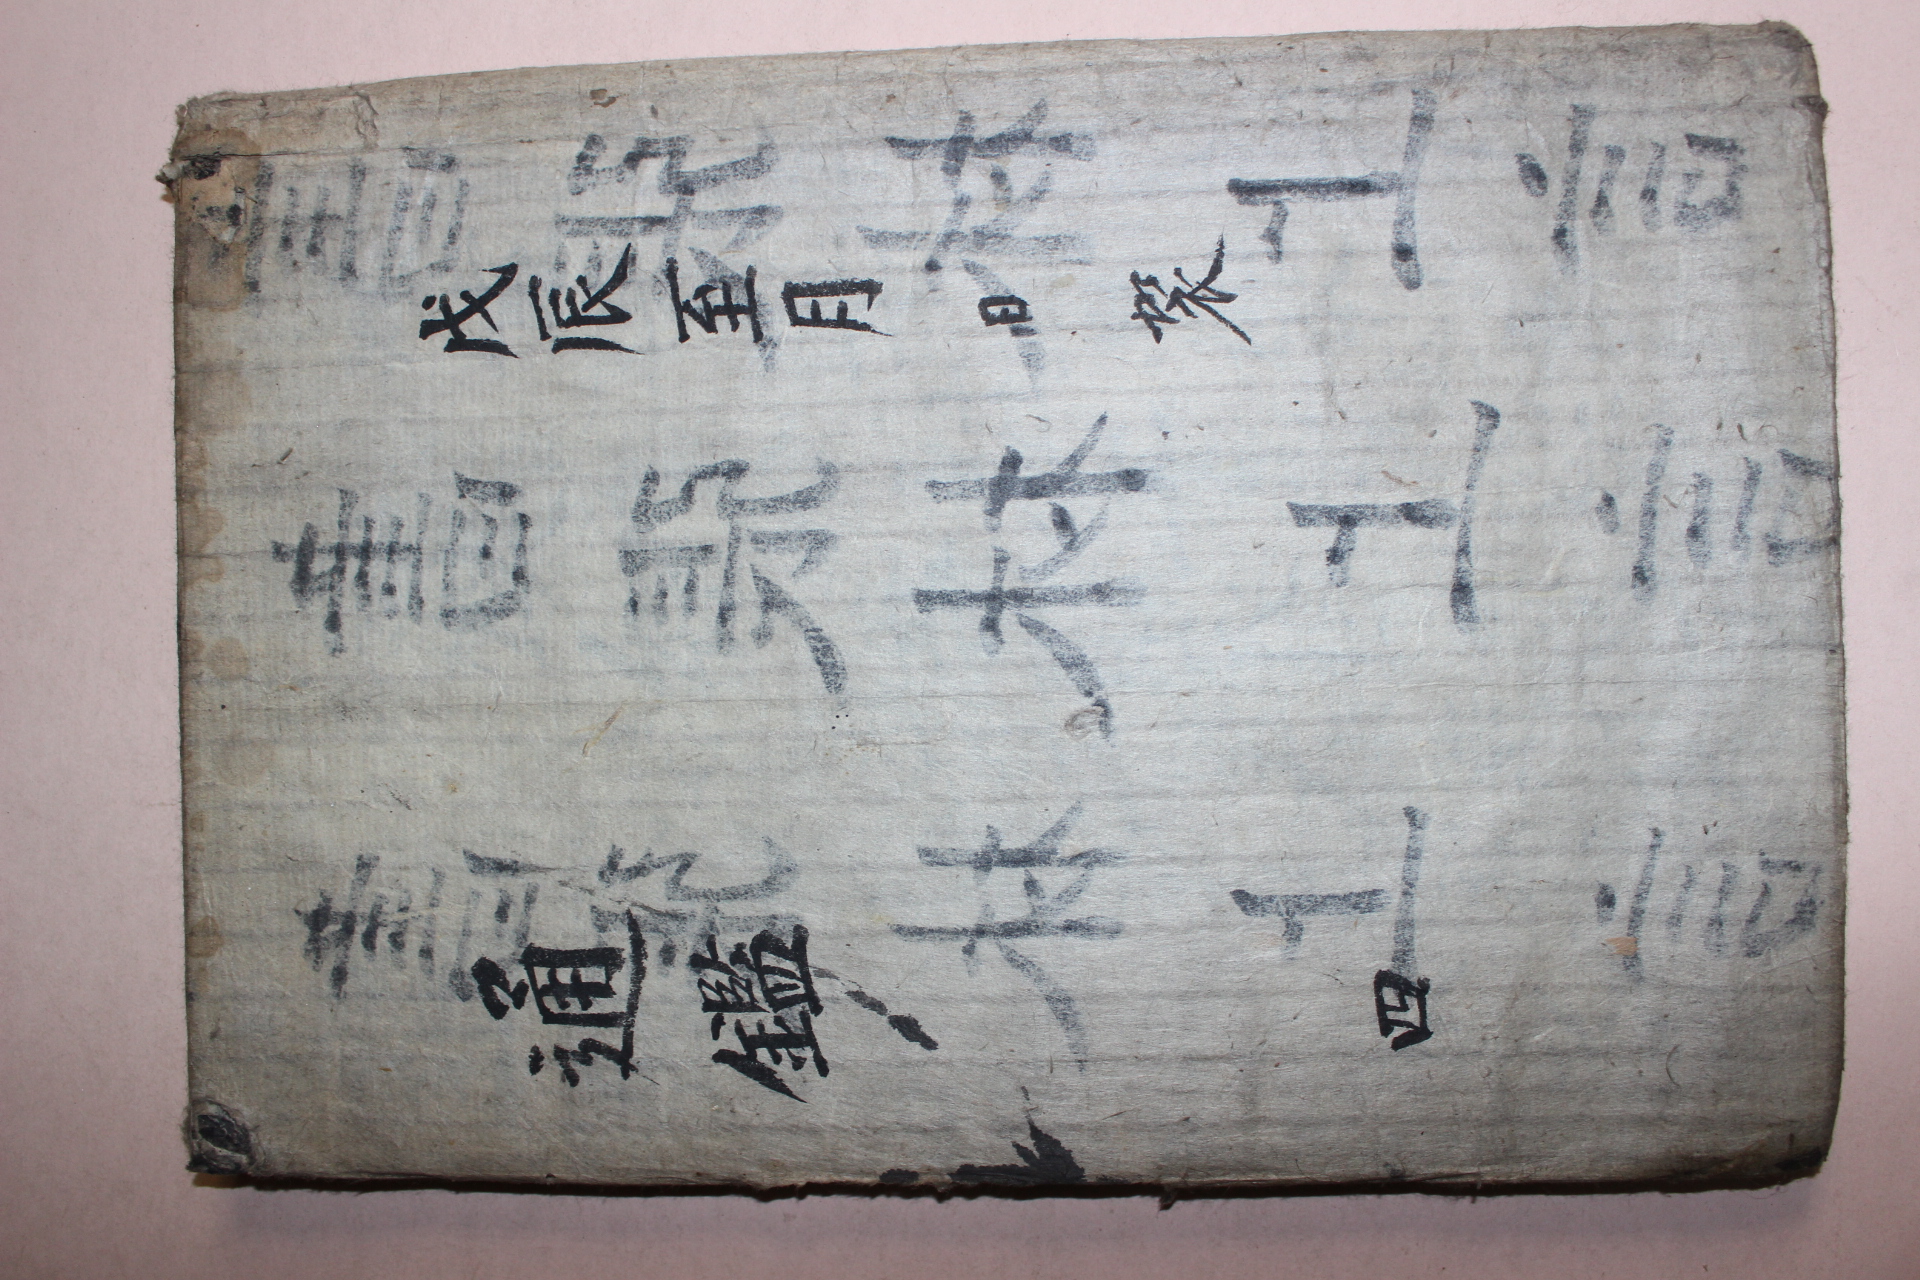 書張林上言
戊辰至月 日
書張林上言
書張林上言
通鑑 四